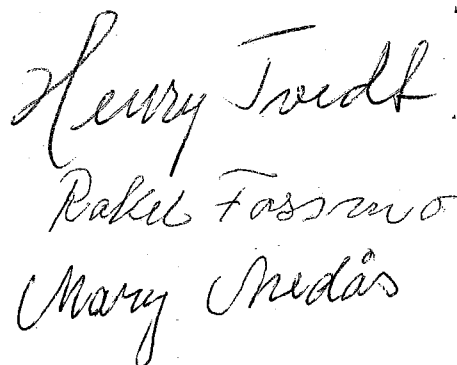 Henry Tvedt.
Rakel Fossmo
Mary Medås